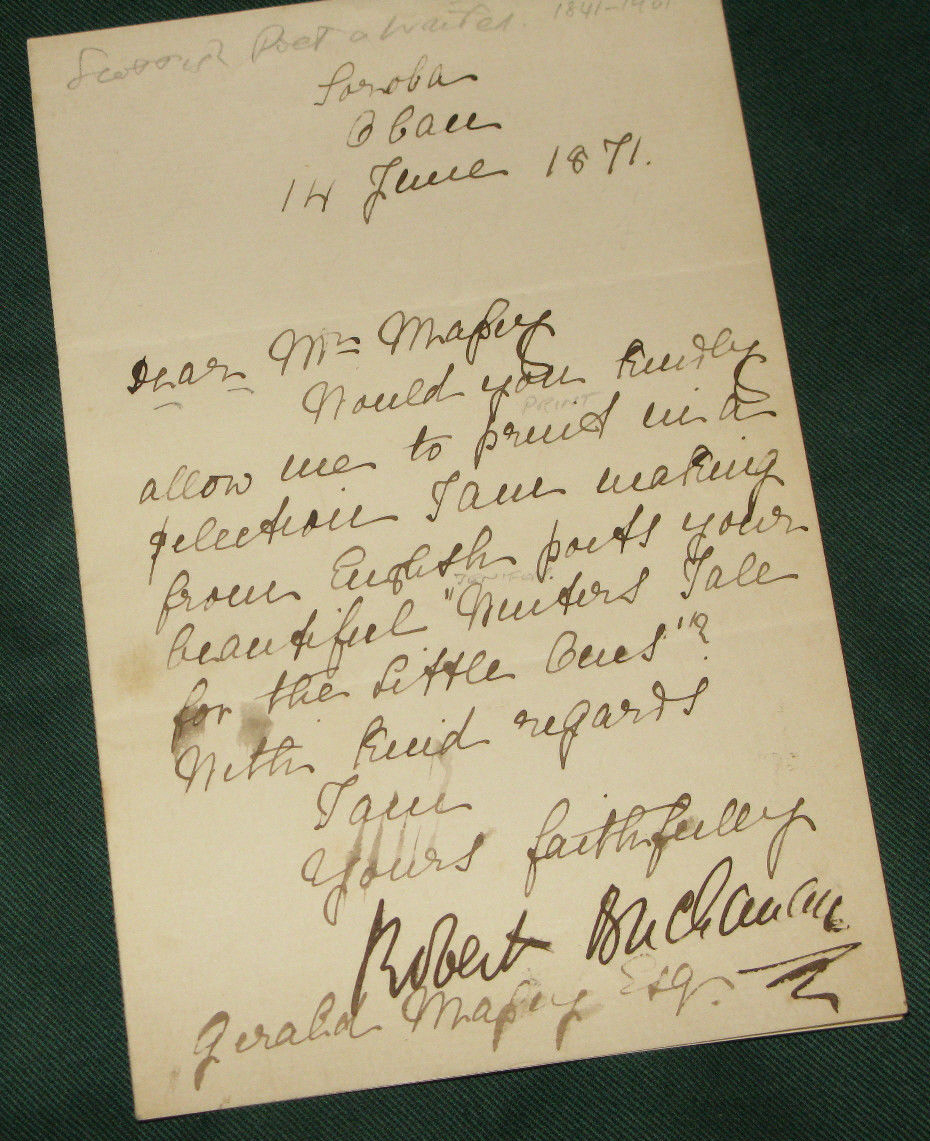 Scottish Poet & Writer. 1841-1901
Soroba
Oban
14 June 1871.
Dear Mr Massey
Would you kindly
PRINT
allow me to print in a
selection I am making
from English poets your
beautiful "Winters Tale
for the Little Ones"?
With kind regards
I am
Yours faithfully
Robert Buchanan
Gerald Massey Esq.